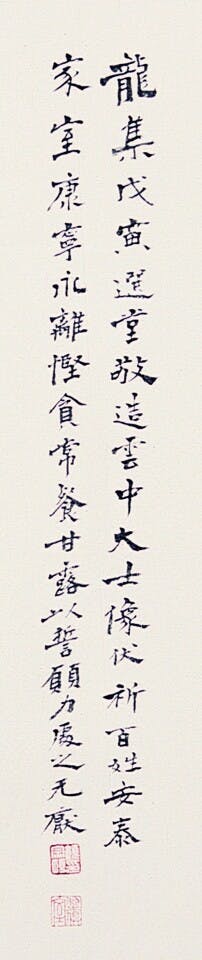 龍集戊寅選堂敬造雲中大士像伏祈百姓安泰
家室康寧永離慳貪常餐甘露以誓願力處之无厭